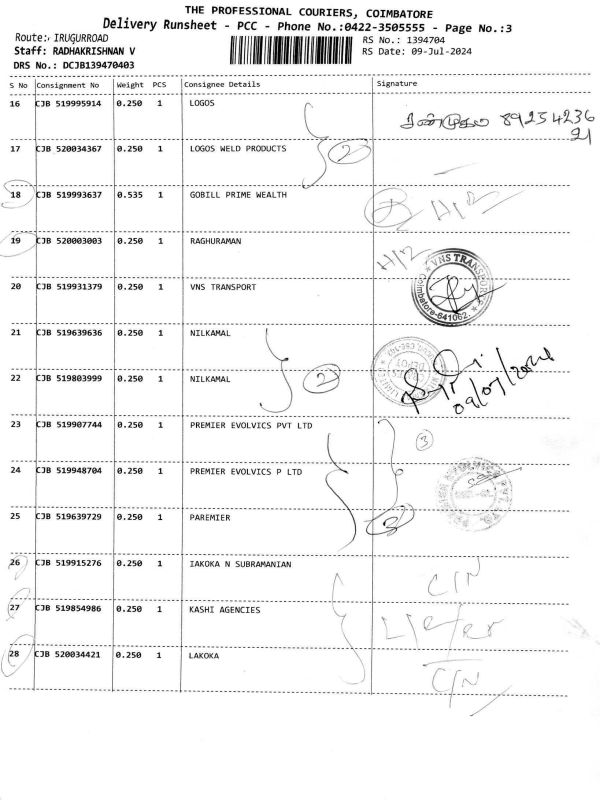 THE PROFESSIONAL COURIERS, COIMBATORE
Delivery Runsheet - PCC - Phone No.:0422-3505555 - Page No.:3
Route: IRUGURROAD
RS No.: 1394704
Staff: RADHAKRISHNAN V
RS Date: 09-Jul-2024
DRS No.: DCJB139470403
S No Consignment No Weight PCS Consignee Details Signature
16 CJB 519995914 0.250 1 LOGOS
89254236
21
17 CJB 520034367 0.250 1 LOGOS WELD PRODUCTS 2
18 CJB 519993637 0.535 1 GOBILL PRIME WEALTH
19 CJB 520003003 0.250 1 RAGHURAMAN
VNS TRANSPORT
Coimbatore-641062
20 CJB 519931379 0.250 1 VNS TRANSPORT
21 CJB 519639636 0.250 1 NILKAMAL
22 CJB 519803999 0.250 1 NILKAMAL 2
09/07/2024
23 CJB 519907744 0.250 1 PREMIER EVOLVICS PVT LTD 3
24 CJB 519948704 0.250 1 PREMIER EVOLVICS P LTD
25 CJB 519639729 0.250 1 PAREMIER 3
26 CJB 519915276 0.250 1 IAKOKA N SUBRAMANIAN C/N
27 CJB 519854986 0.250 1 KASHI AGENCIES
28 CJB 520034421 0.250 1 LAKOKA C/N